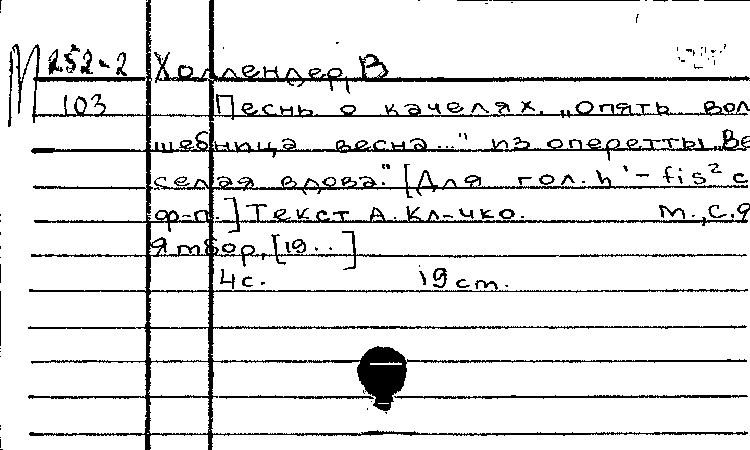 М 252-2 Холлендер, В
103 Песнь о качелях. „Опять вол
шебница весна..." из оперетты „Ве
селая вдова." [Для гол. h' - fis² с
ф-п.] Текст А. Кл-чко. М., С. Я
Ямбор, [19..]
4 с. i9 cm.